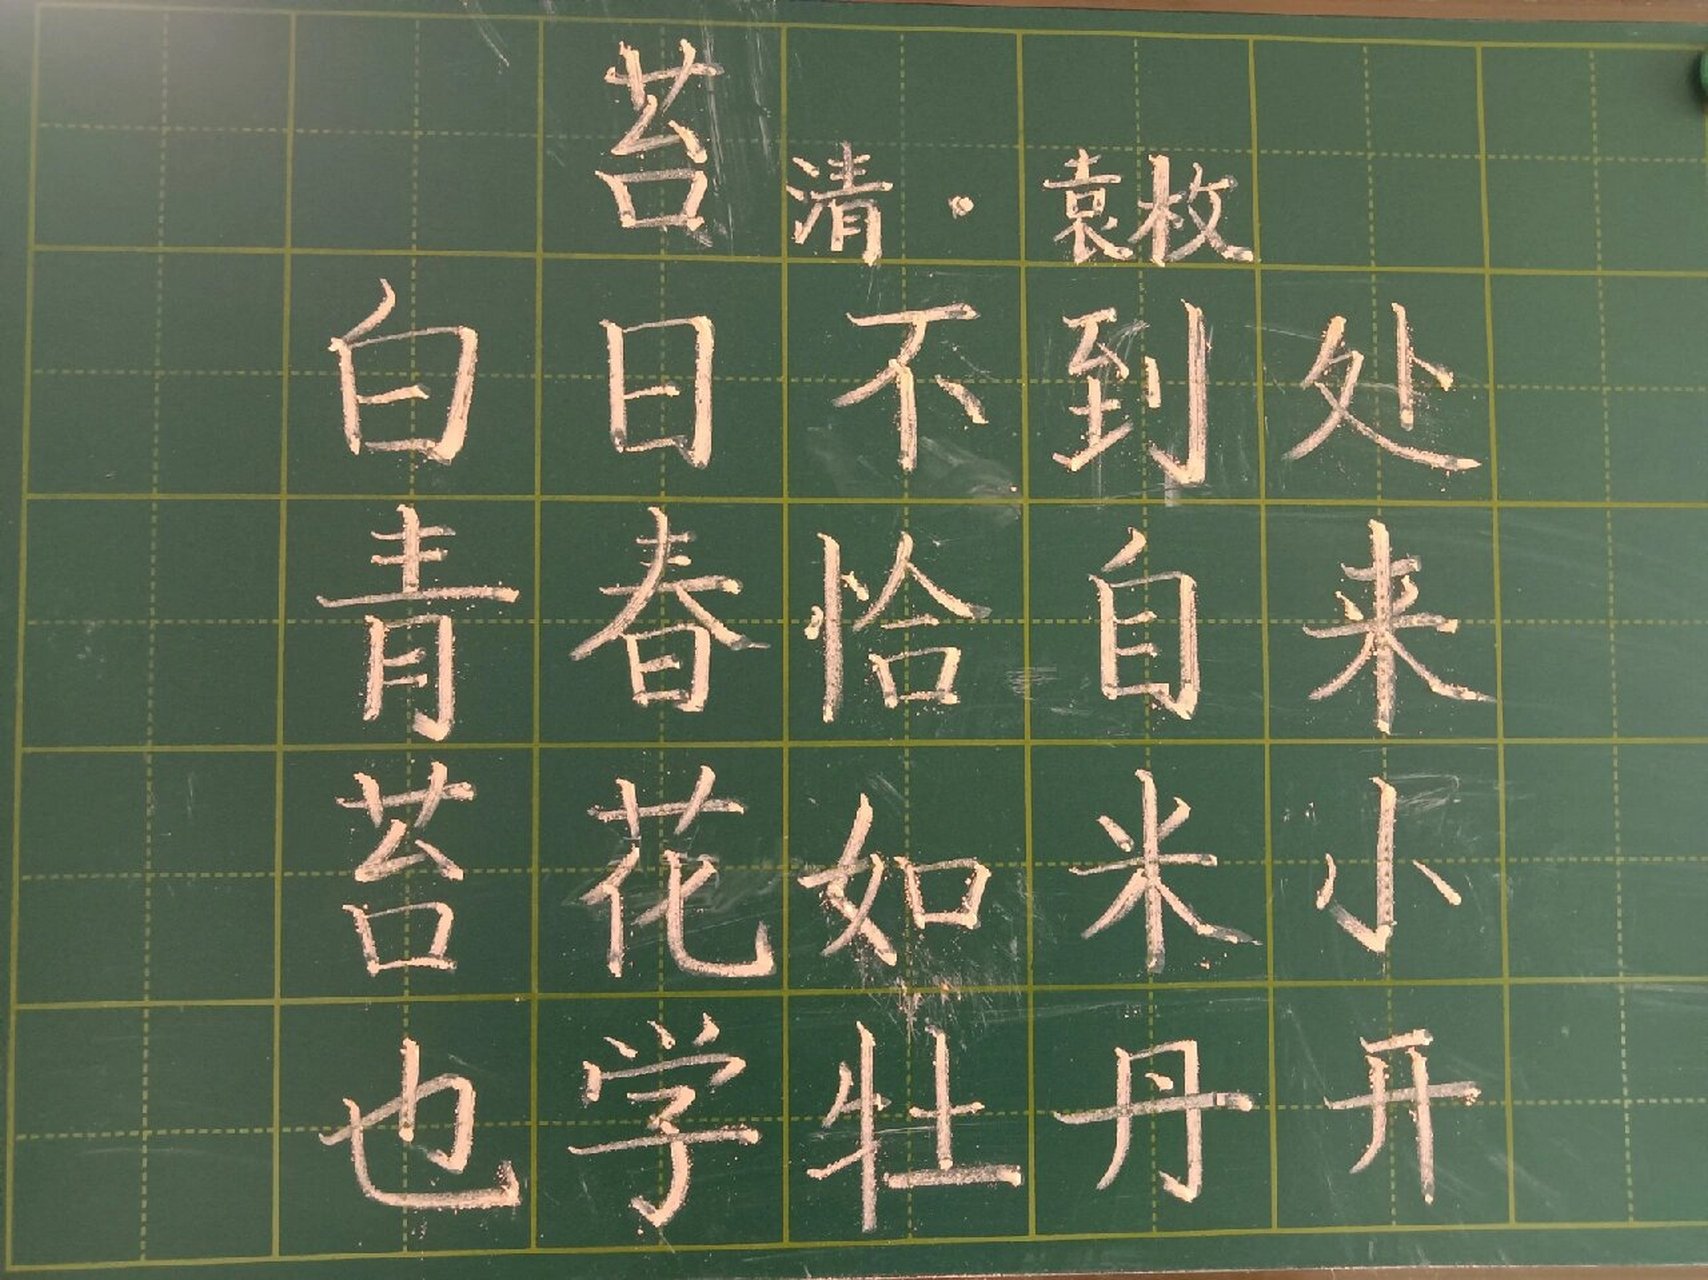 苔
清·袁枚
白日不到处
青春恰自来
苔花如米小
也学牡丹开